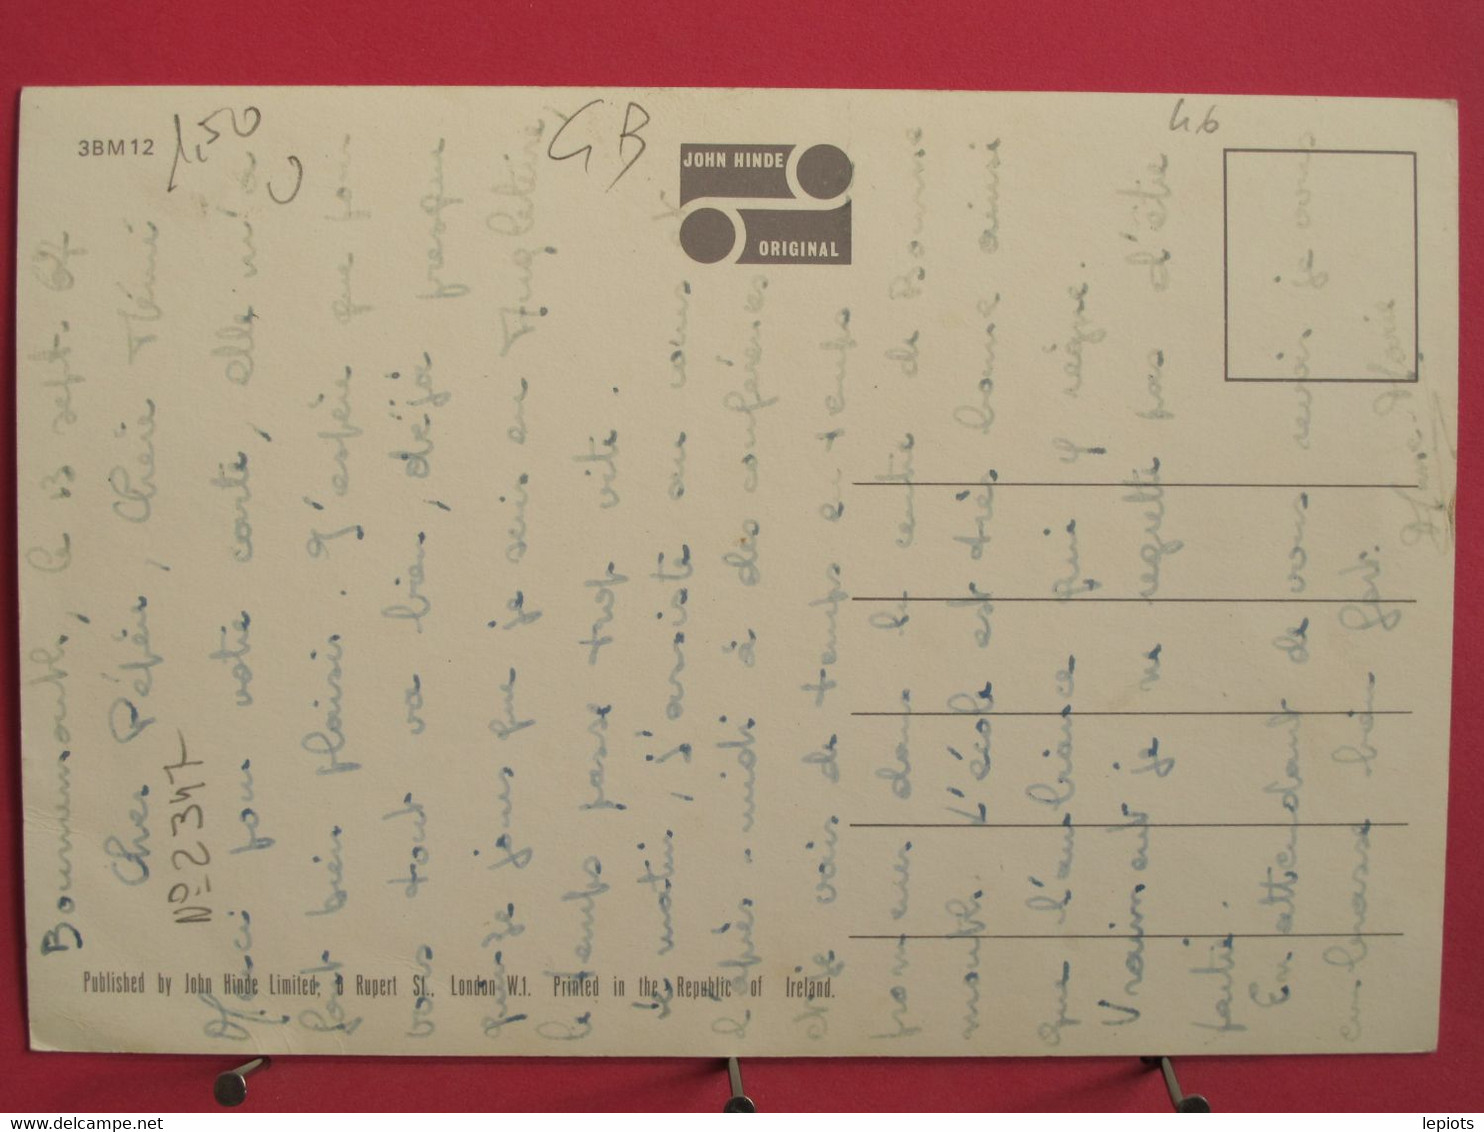 3BM12
1.50
GB
46
JOHN HINDE
ORIGINAL
N° 2347
Bournemouth, le 13 sept. 67
Cher Pépère, Chère Mémé
Merci pour votre carte, elle m'a
fait bien plaisir. J'espère que pour
vous tout va bien, déjà presque
quinze jours que je suis en Angleterre
le temps passe trop vite.
Le matin, j'assiste au cours et
l'après-midi à des conférences
et je vais de temps en temps
promener dans le centre de Bourne
mouth. L'école est très bonne ainsi
que l'ambiance qui y règne.
Vraiment je ne regrette pas d'être
partie.
En attendant de vous revoir je vous
embrasse bien fort.
Anne-Marie
Published by John Hinde Limited, 6 Rupert St., London W.1. Printed in the Republic of Ireland.
© lepiots
delcampe.net